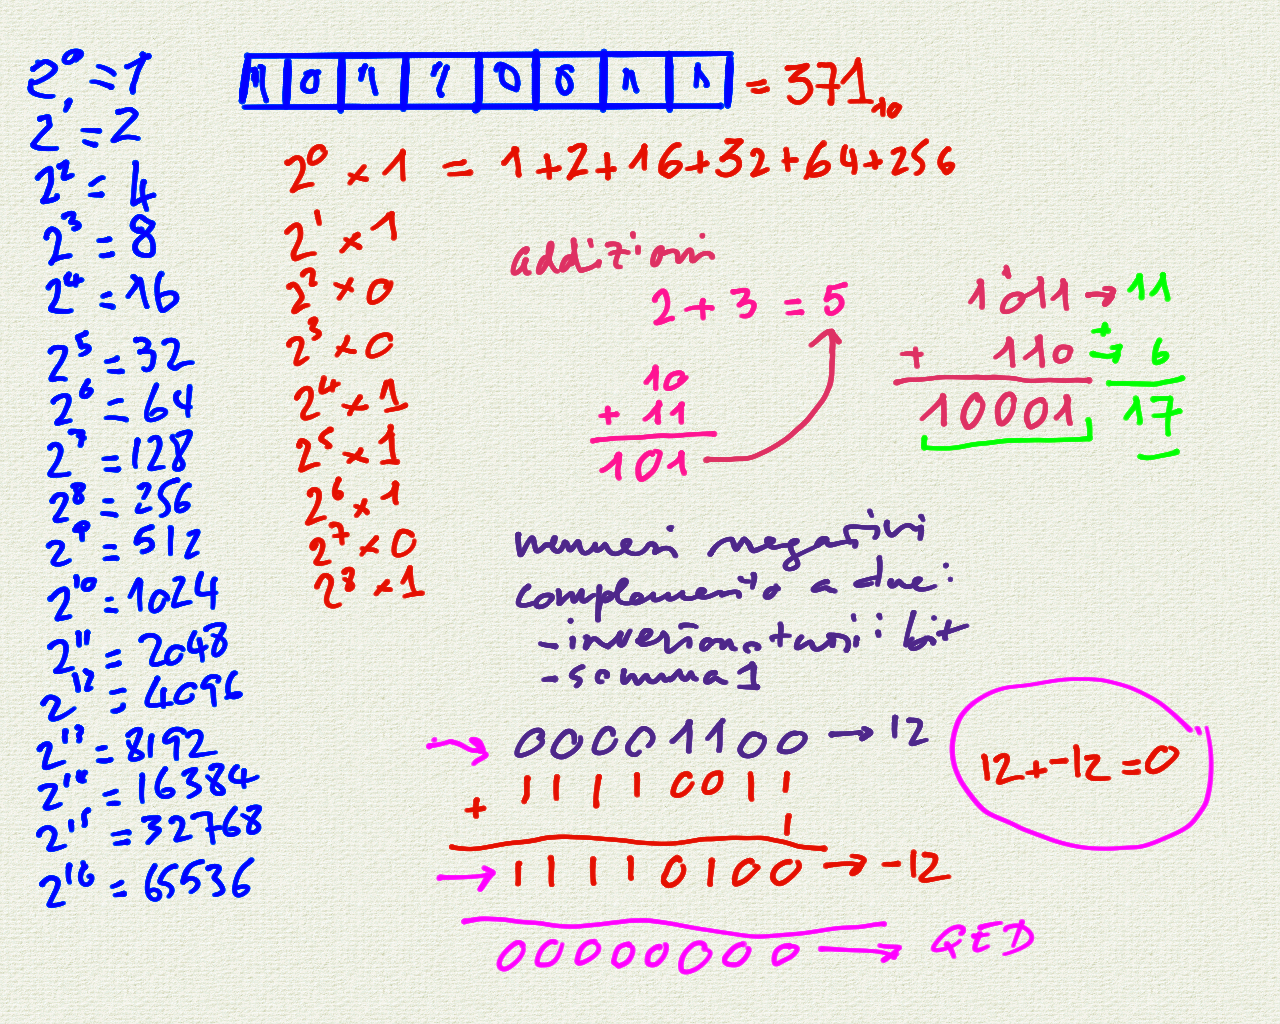 2⁰ = 1
2¹ = 2
2² = 4
2³ = 8
2⁴ = 16
2⁵ = 32
2⁶ = 64
2⁷ = 128
2⁸ = 256
2⁹ = 512
2¹⁰ = 1024
2¹¹ = 2048
2¹² = 4096
2¹³ = 8192
2¹⁴ = 16384
2¹⁵ = 32768
2¹⁶ = 65536
1 0 1 1 0 0 1 1 = 371₁₀
2⁰ × 1 = 1+2+16+32+64+256
2¹ × 1
2² × 0
2³ × 0
2⁴ × 1
2⁵ × 1
2⁶ × 1
2⁷ × 0
2⁸ × 1
addizioni
2 + 3 = 5
10
+ 11
101
1011 → 11
+ 110 → + 6
10001 17
numeri negativi
complemento a due:
- inversione tutti i bit
- somma 1
→ 00001100 → 12
11110011
+ 1
→ 11110100 → -12
00000000 → QED
12 + -12 = 0